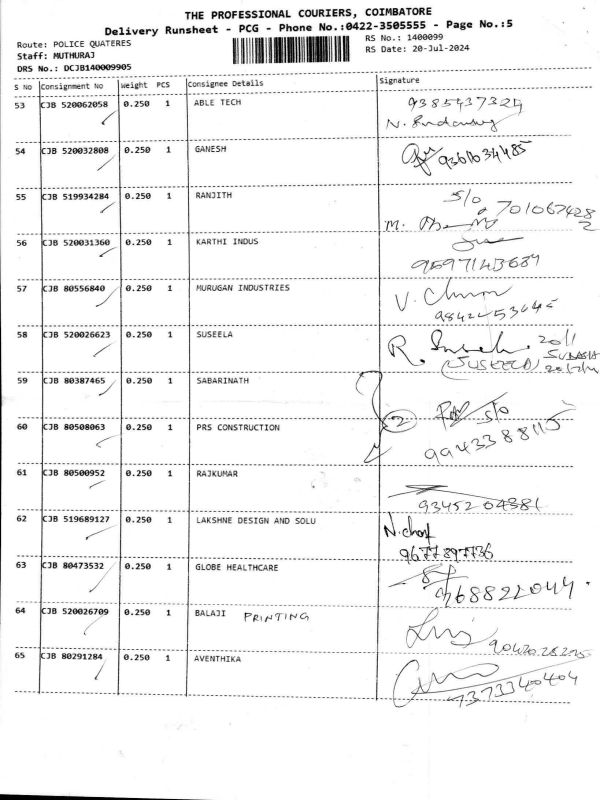 THE PROFESSIONAL COURIERS, COIMBATORE
Delivery Runsheet - PCG - Phone No.:0422-3505555 - Page No.:5
Route: POLICE QUATERES
RS No.: 1400099
Staff: MUTHURAJ
RS Date: 20-Jul-2024
DRS No.: DCJB140009905
S No Consignment No Weight PCS Consignee Details Signature
53 CJB 520062058 0.250 1 ABLE TECH
N.
54 CJB 520032808 0.250 1 GANESH 9361034485
55 CJB 519934284 0.250 1 RANJITH S/o
M.
56 CJB 520031360 0.250 1 KARTHI INDUS
9597143687
57 CJB 80556840 0.250 1 MURUGAN INDUSTRIES V.
58 CJB 520026623 0.250 1 SUSEELA R.
(SUSEELA)
59 CJB 80387465 0.250 1 SABARINATH
60 CJB 80508063 0.250 1 PRS CONSTRUCTION 2 S/o
9943388115
61 CJB 80500952 0.250 1 RAJKUMAR
9345204381
62 CJB 519689127 0.250 1 LAKSHNE DESIGN AND SOLU
9677897736
63 CJB 80473532 0.250 1 GLOBE HEALTHCARE
64 CJB 520026709 0.250 1 BALAJI PRINTING
65 CJB 80291284 0.250 1 AVENTHIKA
7373340404